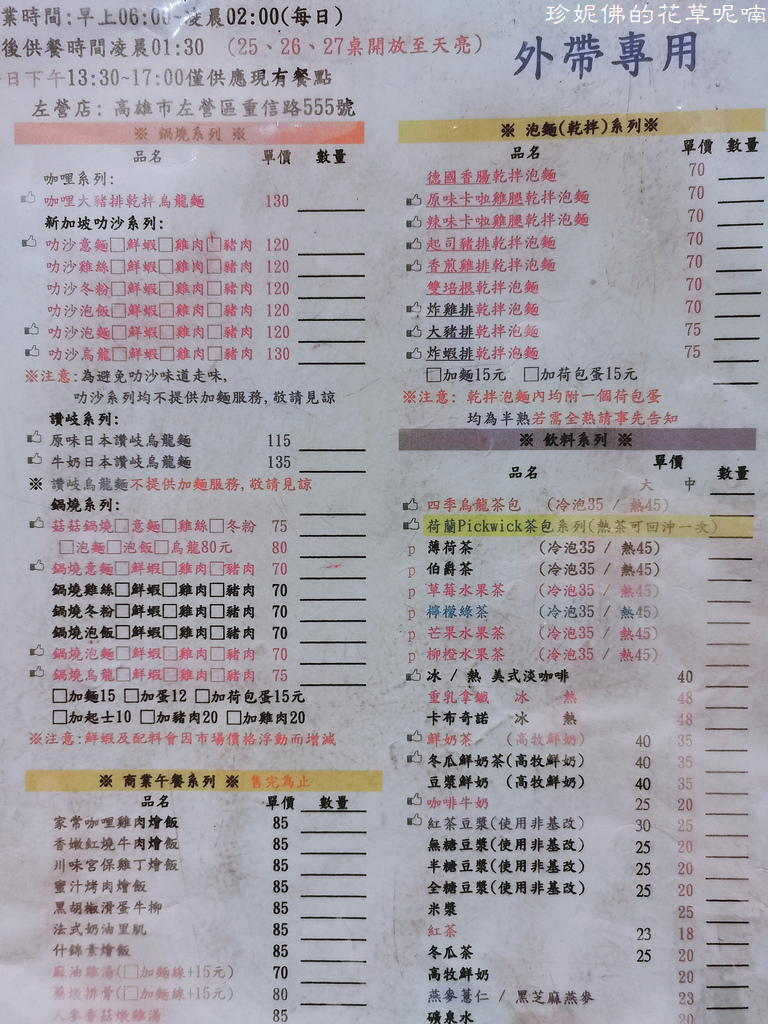 珍妮佛的花草呢喃
業時間:早上06:00~凌晨02:00(每日)
後供餐時間凌晨01:30 (25、26、27桌開放至天亮)
日下午13:30~17:00僅供應現有餐點
左營店: 高雄市左營區重信路555號
外帶專用
※ 鍋燒系列 ※
品名 單價 數量
咖哩系列:
咖哩大豬排乾拌烏龍麵 130
新加坡叻沙系列:
叻沙意麵□鮮蝦□雞肉□豬肉 120
叻沙雞絲□鮮蝦□雞肉□豬肉 120
叻沙冬粉□鮮蝦□雞肉□豬肉 120
叻沙泡飯□鮮蝦□雞肉□豬肉 120
叻沙泡麵□鮮蝦□雞肉□豬肉 120
叻沙烏龍□鮮蝦□雞肉□豬肉 130
※注意:為避免叻沙味道走味,
叻沙系列均不提供加麵服務,敬請見諒
讚岐系列:
原味日本讚岐烏龍麵 115
牛奶日本讚岐烏龍麵 135
※ 讚岐烏龍麵不提供加麵服務,敬請見諒
鍋燒系列:
菇菇鍋燒□意麵□雞絲□冬粉 75
□泡麵□泡飯□烏龍80元 80
鍋燒意麵□鮮蝦□雞肉□豬肉 70
鍋燒雞絲□鮮蝦□雞肉□豬肉 70
鍋燒冬粉□鮮蝦□雞肉□豬肉 70
鍋燒泡飯□鮮蝦□雞肉□豬肉 70
鍋燒泡麵□鮮蝦□雞肉□豬肉 70
鍋燒烏龍□鮮蝦□雞肉□豬肉 75
□加麵15 □加蛋12 □加荷包蛋15元
□加起士10 □加豬肉20 □加雞肉20
※注意:鮮蝦及配料會因市場價格浮動而增減
※ 商業午餐系列 ※ 售完為止
品名 單價 數量
家常咖哩雞肉燴飯 85
香嫩紅燒牛肉燴飯 85
川味宮保雞丁燴飯 85
蜜汁烤肉燴飯 85
黑胡椒滑蛋牛柳 85
法式奶油里肌 85
什錦素燴飯 85
麻油雞湯(□加麵線+15元) 70
藥燉排骨(□加麵線+15元) 80
人參香菇燉雞湯 85
※ 泡麵(乾拌)系列※
品名 單價 數量
德國香腸乾拌泡麵 70
原味卡啦雞腿乾拌泡麵 70
辣味卡啦雞腿乾拌泡麵 70
起司豬排乾拌泡麵 70
香煎雞排乾拌泡麵 70
雙培根乾拌泡麵 70
炸雞排乾拌泡麵 70
大豬排乾拌泡麵 75
炸蝦排乾拌泡麵 75
□加麵15元 □加荷包蛋15元
※注意: 乾拌泡麵內均附一個荷包蛋
均為半熟若需全熟請事先告知
※ 飲料系列 ※
品名 單價 數量
大 中
四季烏龍茶包 (冷泡35 / 熱45)
荷蘭Pickwick茶包系列(熱茶可回沖一次)
p 薄荷茶 (冷泡35 / 熱45)
p 伯爵茶 (冷泡35 / 熱45)
p 草莓水果茶 (冷泡35 / 熱45)
p 檸檬綠茶 (冷泡35 / 熱45)
p 芒果水果茶 (冷泡35 / 熱45)
p 柳橙水果茶 (冷泡35 / 熱45)
冰 / 熱 美式淡咖啡 40
重乳拿鐵 冰 熱 48
卡布奇諾 冰 熱 48
鮮奶茶 (高牧鮮奶) 40 35
冬瓜鮮奶茶(高牧鮮奶) 40 35
豆漿鮮奶 (高牧鮮奶) 40 35
咖啡牛奶 25 20
紅茶豆漿(使用非基改) 30 25
無糖豆漿(使用非基改) 25 20
半糖豆漿(使用非基改) 25 20
全糖豆漿(使用非基改) 25 20
米漿 25
紅茶 23 18
冬瓜茶 25 20
高牧鮮奶 20
燕麥薏仁 / 黑芝麻燕麥 23
礦泉水 20